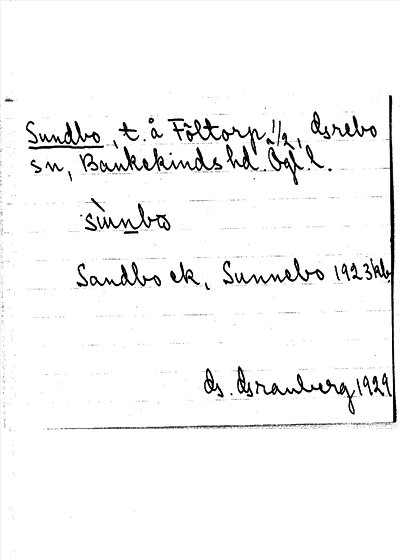 Sundbo, t. å Föltorp 1/2, Örebo
sn, Bankekinds hd. Ögl. l.
sùnbo
Sandbo ek, Sunnebo 1923 kb.
1929